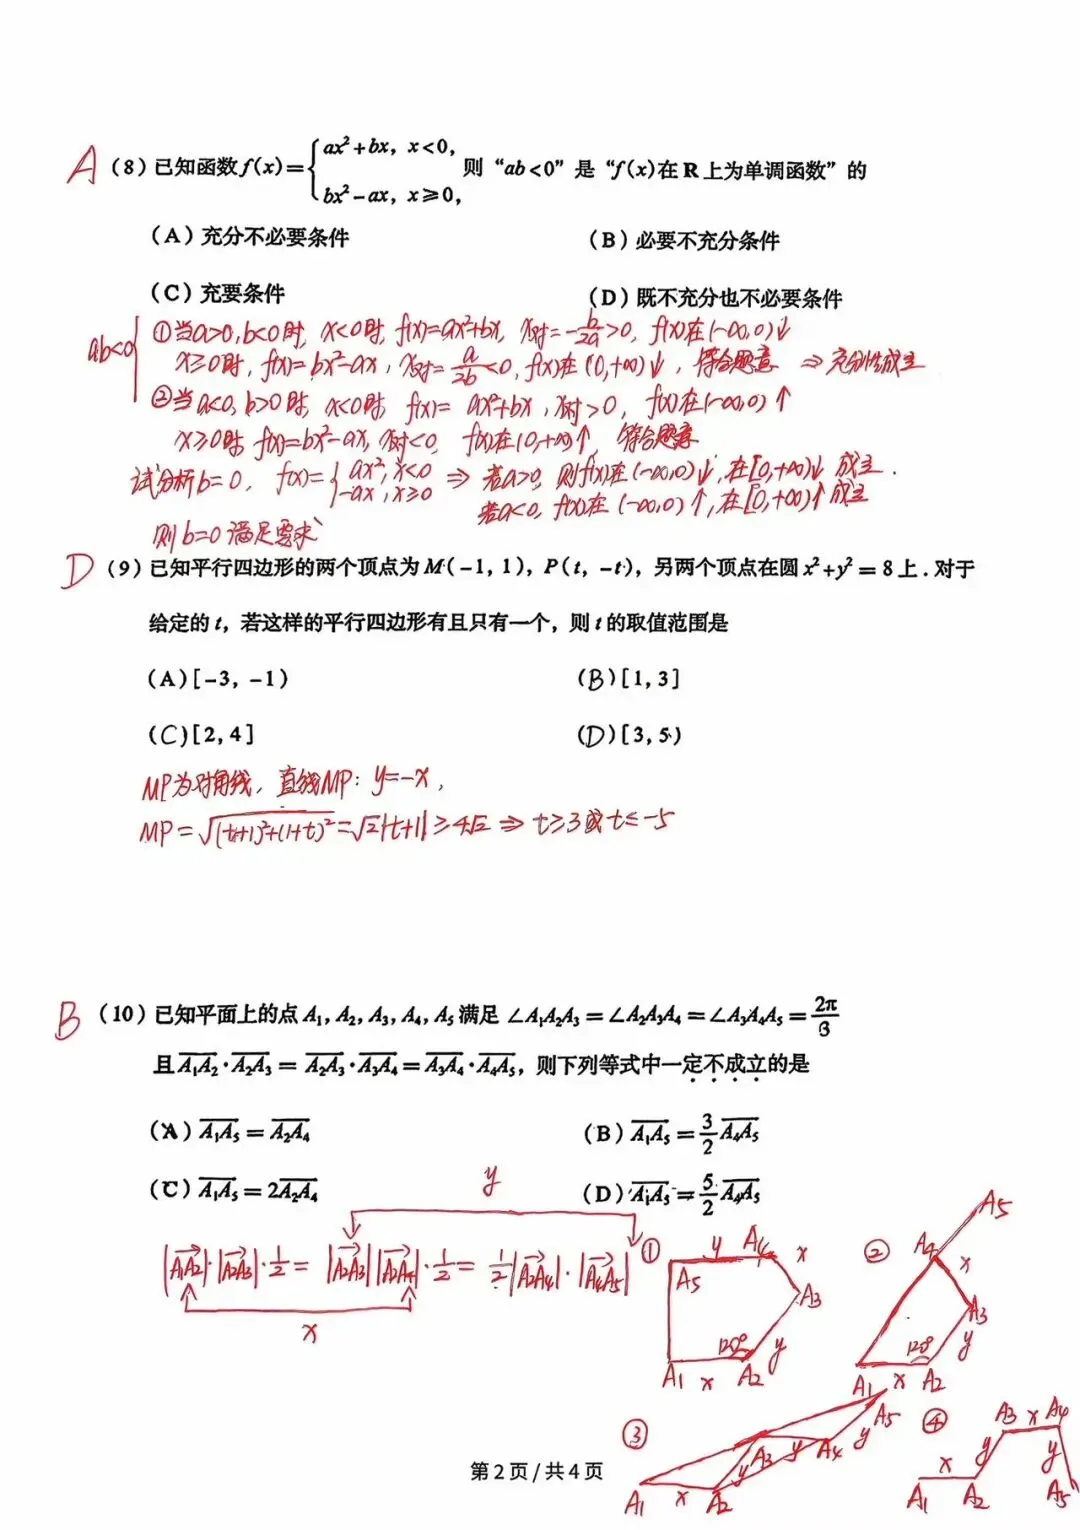 A (8) 已知函数 f(x)={ax²+bx, x<0, bx²-ax, x≥0, 则 “ab<0” 是 “f(x)在 R 上为单调函数” 的
(A) 充分不必要条件 (B) 必要不充分条件
(C) 充要条件 (D) 既不充分也不必要条件
ab<0 { ①当a>0, b<0时, x<0时, f(x)=ax²+bx, x对=-b/2a>0, f(x)在(-∞,0)↓
x≥0时, f(x)=bx²-ax, x对=a/2b<0, f(x)在(0,+∞)↓, 符合题意 ⇒ 充分性成立
②当a<0, b>0时, x<0时, f(x)= ax²+bx, x对>0, f(x)在(-∞,0)↑
x≥0时, f(x)=bx²-ax, x对<0, f(x)在(0,+∞)↑, 符合题意
试分析b=0, f(x)={ax², x<0 -ax, x≥0 ⇒ 若a>0, 则f(x)在(-∞,0)↓, 在[0,+∞)↓ 成立.
若a<0, f(x)在(-∞,0)↑, 在[0,+∞)↑ 成立
则b=0满足要求
D (9) 已知平行四边形的两个顶点为 M(-1, 1), P(t, -t), 另两个顶点在圆 x²+y²=8 上. 对于
给定的 t, 若这样的平行四边形有且只有一个, 则 t 的取值范围是
(A) [-3, -1) (B) [1, 3]
(C) [2, 4] (D) [3, 5)
MP为对角线, 直线MP: y=-x,
MP=√((t+1)²+(1+t)²)=√2|t+1|≥4√2 ⇒ t≥3 或 t≤-5
B (10) 已知平面上的点 A₁, A₂, A₃, A₄, A₅ 满足 ∠A₁A₂A₃=∠A₂A₃A₄=∠A₃A₄A₅=2π/3
且 A₁A₂·A₂A₃=A₂A₃·A₃A₄=A₃A₄·A₄A₅, 则下列等式中一定不成立的是
(A) A₁A₅=A₂A₄ (B) A₁A₅=3/2 A₄A₅
(C) A₁A₅=2A₂A₄ (D) A₁A₅=5/2 A₄A₅
y
|A₁A₂|·|A₂A₃|·1/2=|A₂A₃||A₃A₄|·1/2=1/2|A₃A₄|·|A₄A₅|
x
① y A₄ x A₅ A₃ 120° y A₁ x A₂
② A₅ A₄ x A₃ 120° y A₁ x A₂
③ A₅ A₃ y A₄ y y A₁ x A₂
④ A₃ x A₄ x y y A₁ A₂ A₅
第 2 页 / 共 4 页